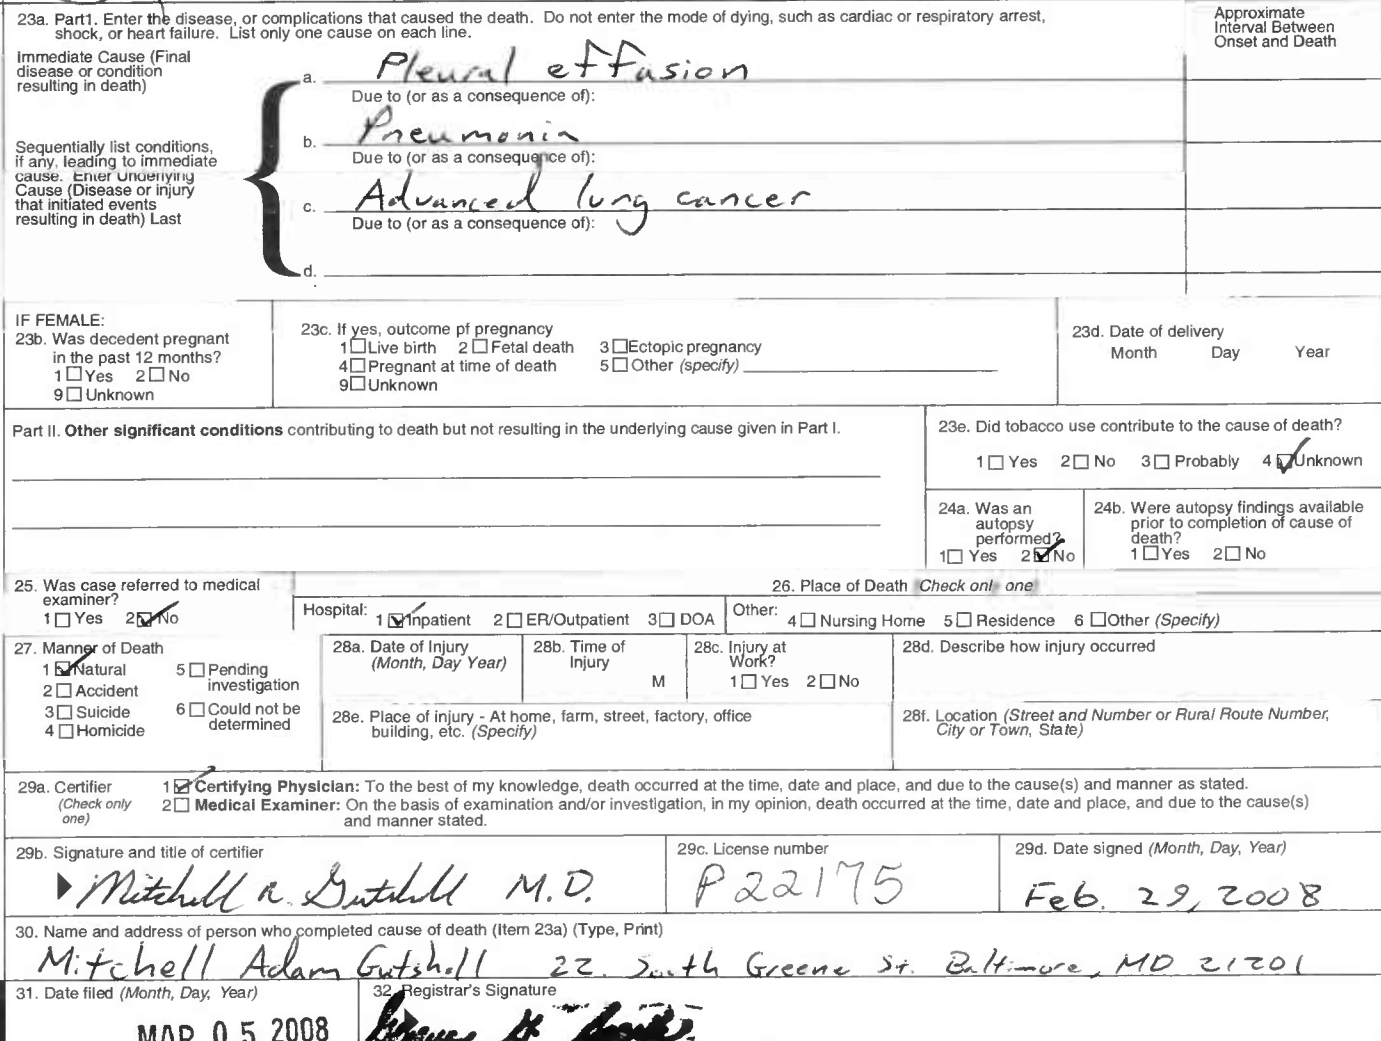 23a. Part1. Enter the disease, or complications that caused the death. Do not enter the mode of dying, such as cardiac or respiratory arrest,
shock, or heart failure. List only one cause on each line.
Approximate
Interval Between
Onset and Death
Immediate Cause (Final
disease or condition
resulting in death)
a. Pleural effusion
Due to (or as a consequence of):
b. Pneumonia
Due to (or as a consequence of):
Sequentially list conditions,
if any, leading to immediate
cause. Enter Underlying
Cause (Disease or injury
that initiated events
resulting in death) Last
c. Advanced lung cancer
Due to (or as a consequence of):
d.
IF FEMALE:
23b. Was decedent pregnant
in the past 12 months?
1 ☐ Yes 2 ☐ No
9 ☐ Unknown
23c. If yes, outcome pf pregnancy
1 ☐ Live birth 2 ☐ Fetal death 3 ☐ Ectopic pregnancy
4 ☐ Pregnant at time of death 5 ☐ Other (specify)
9 ☐ Unknown
23d. Date of delivery
Month Day Year
Part II. Other significant conditions contributing to death but not resulting in the underlying cause given in Part I.
23e. Did tobacco use contribute to the cause of death?
1 ☐ Yes 2 ☐ No 3 ☐ Probably 4 ☑ Unknown
24a. Was an
autopsy
performed?
1 ☐ Yes 2 ☑ No
24b. Were autopsy findings available
prior to completion of cause of
death?
1 ☐ Yes 2 ☐ No
25. Was case referred to medical
examiner?
1 ☐ Yes 2 ☑ No
26. Place of Death (Check only one)
Hospital: 1 ☑ Inpatient 2 ☐ ER/Outpatient 3 ☐ DOA Other: 4 ☐ Nursing Home 5 ☐ Residence 6 ☐ Other (Specify)
27. Manner of Death
1 ☑ Natural 5 ☐ Pending
investigation
2 ☐ Accident
3 ☐ Suicide 6 ☐ Could not be
determined
4 ☐ Homicide
28a. Date of Injury
(Month, Day Year)
28b. Time of
Injury
M
28c. Injury at
Work?
1 ☐ Yes 2 ☐ No
28d. Describe how injury occurred
28e. Place of injury - At home, farm, street, factory, office
building, etc. (Specify)
28f. Location (Street and Number or Rural Route Number,
City or Town, State)
29a. Certifier
(Check only
one)
1 ☑ Certifying Physician: To the best of my knowledge, death occurred at the time, date and place, and due to the cause(s) and manner as stated.
2 ☐ Medical Examiner: On the basis of examination and/or investigation, in my opinion, death occurred at the time, date and place, and due to the cause(s)
and manner stated.
29b. Signature and title of certifier
Mitchell A. Gutshall M.D.
29c. License number
P22175
29d. Date signed (Month, Day, Year)
Feb. 29, 2008
30. Name and address of person who completed cause of death (Item 23a) (Type, Print)
Mitchell Adam Gutshall 22 South Greene St. Baltimore, MD 21201
31. Date filed (Month, Day, Year)
MAR 05 2008
32. Registrar's Signature